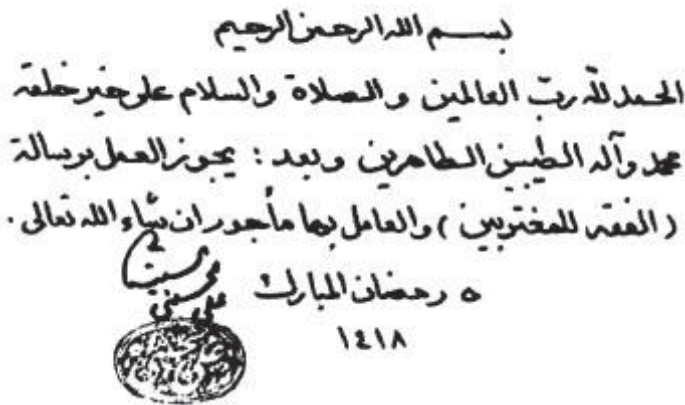 بسم الله الرحمن الرحيم
الحمد لله رب العالمين و الصلاة والسلام على خير خلقه
محمد وآله الطيبين الطاهرين وبعد : يجوز العمل برسالة
( الفقه للمغتربين ) والعامل بها مأجور ان شاء الله تعالى .
٥ رمضان المبارك
١٤١٨
علي الحسيني